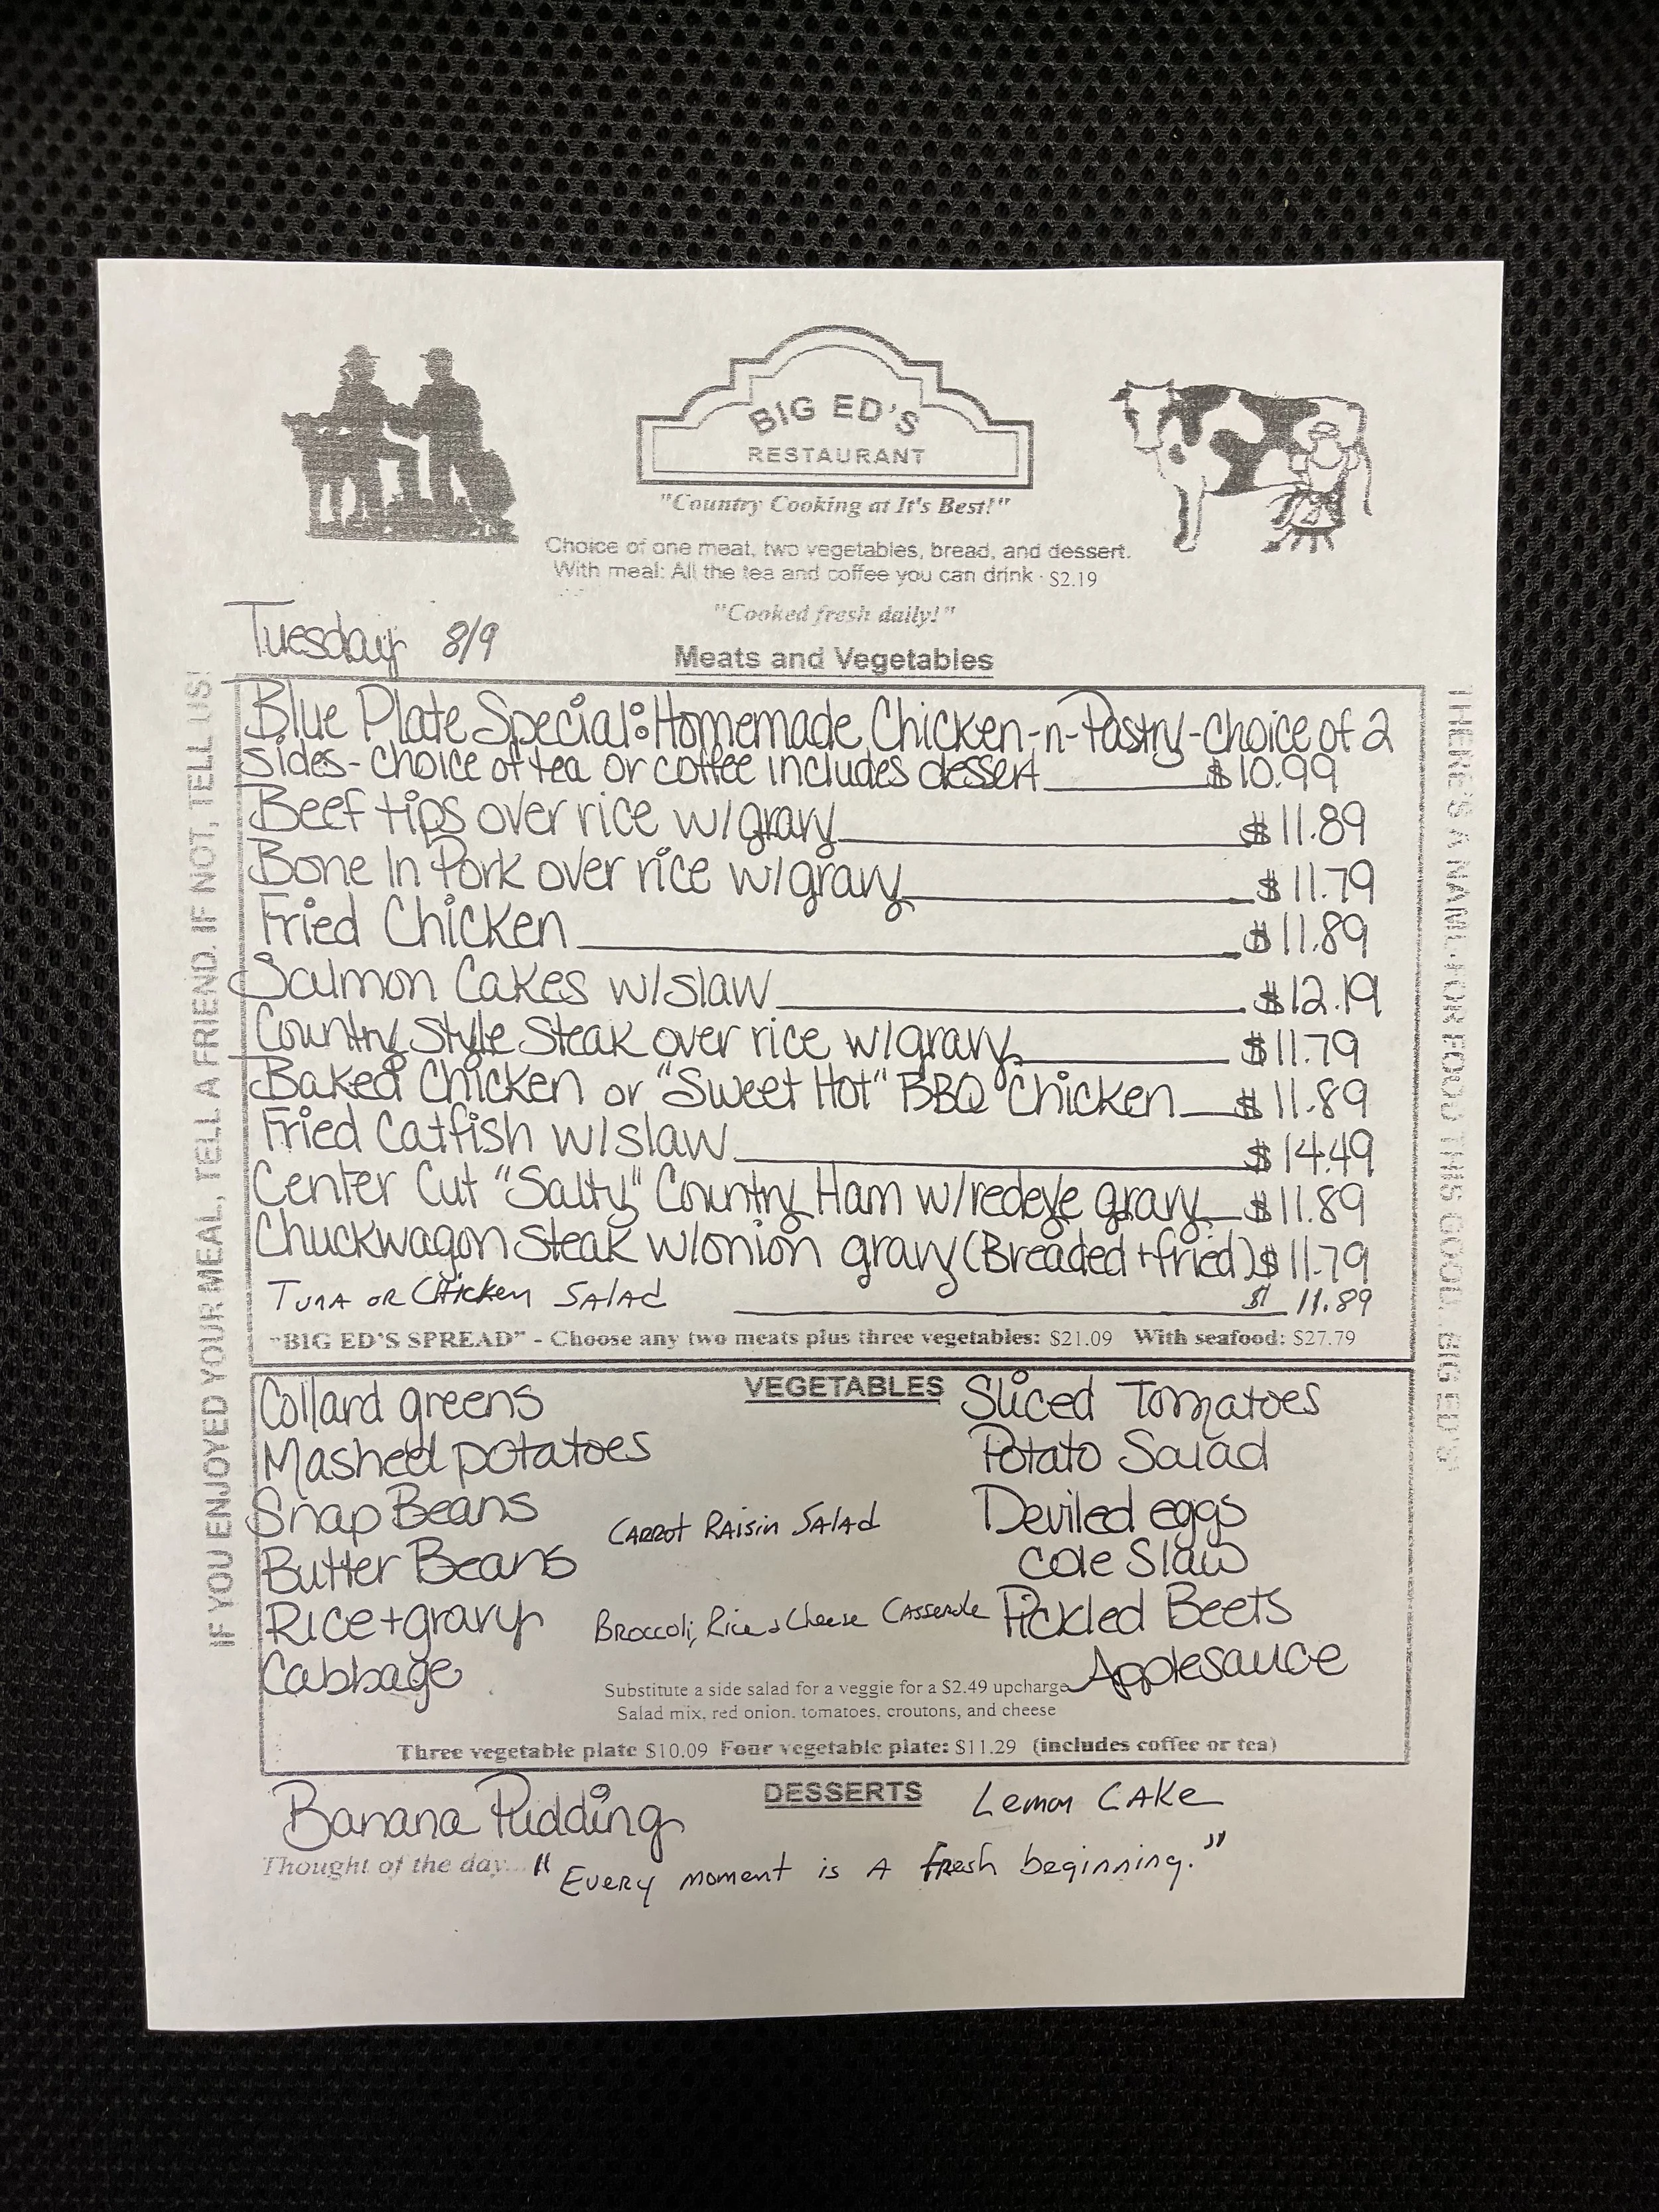 BIG ED'S
RESTAURANT
"Country Cooking at It's Best!"
Choice of one meat, two vegetables, bread, and dessert.
With meal: All the tea and coffee you can drink - $2.19
"Cooked fresh daily!"
Tuesday 8/9
Meats and Vegetables
IF YOU ENJOYED YOUR MEAL, TELL A FRIEND. IF NOT, TELL US!
Blue Plate Special: Homemade Chicken-n-Pastry - choice of 2
sides - choice of tea or coffee includes dessert $10.99
Beef tips over rice w/gravy $11.89
Bone In Pork over rice w/gravy $11.79
Fried Chicken $11.89
Salmon Cakes w/slaw $12.19
Country Style Steak over rice w/gravy $11.79
Baked Chicken or "Sweet Hot" BBQ Chicken $11.89
Fried Catfish w/slaw $14.49
Center Cut "Salty" Country Ham w/redeye gravy $11.89
Chuckwagon Steak w/onion gravy (Breaded + fried) $11.79
Tuna or Chicken Salad $11.89
"BIG ED'S SPREAD" - Choose any two meats plus three vegetables: $21.09 With seafood: $27.79
THERE'S A NAME FOR FOOD THIS GOOD. BIG ED'S
VEGETABLES
Collard greens
Mashed potatoes
Snap Beans
Butter Beans
Rice + gravy
Cabbage
Carrot Raisin Salad
Broccoli, Rice & Cheese Casserole
Sliced Tomatoes
Potato Salad
Deviled eggs
Cole Slaw
Pickled Beets
Applesauce
Substitute a side salad for a veggie for a $2.49 upcharge
Salad mix, red onion, tomatoes, croutons, and cheese
Three vegetable plate $10.09 Four vegetable plate: $11.29 (includes coffee or tea)
DESSERTS
Banana Pudding
Lemon Cake
Thought of the day... "Every moment is a fresh beginning."